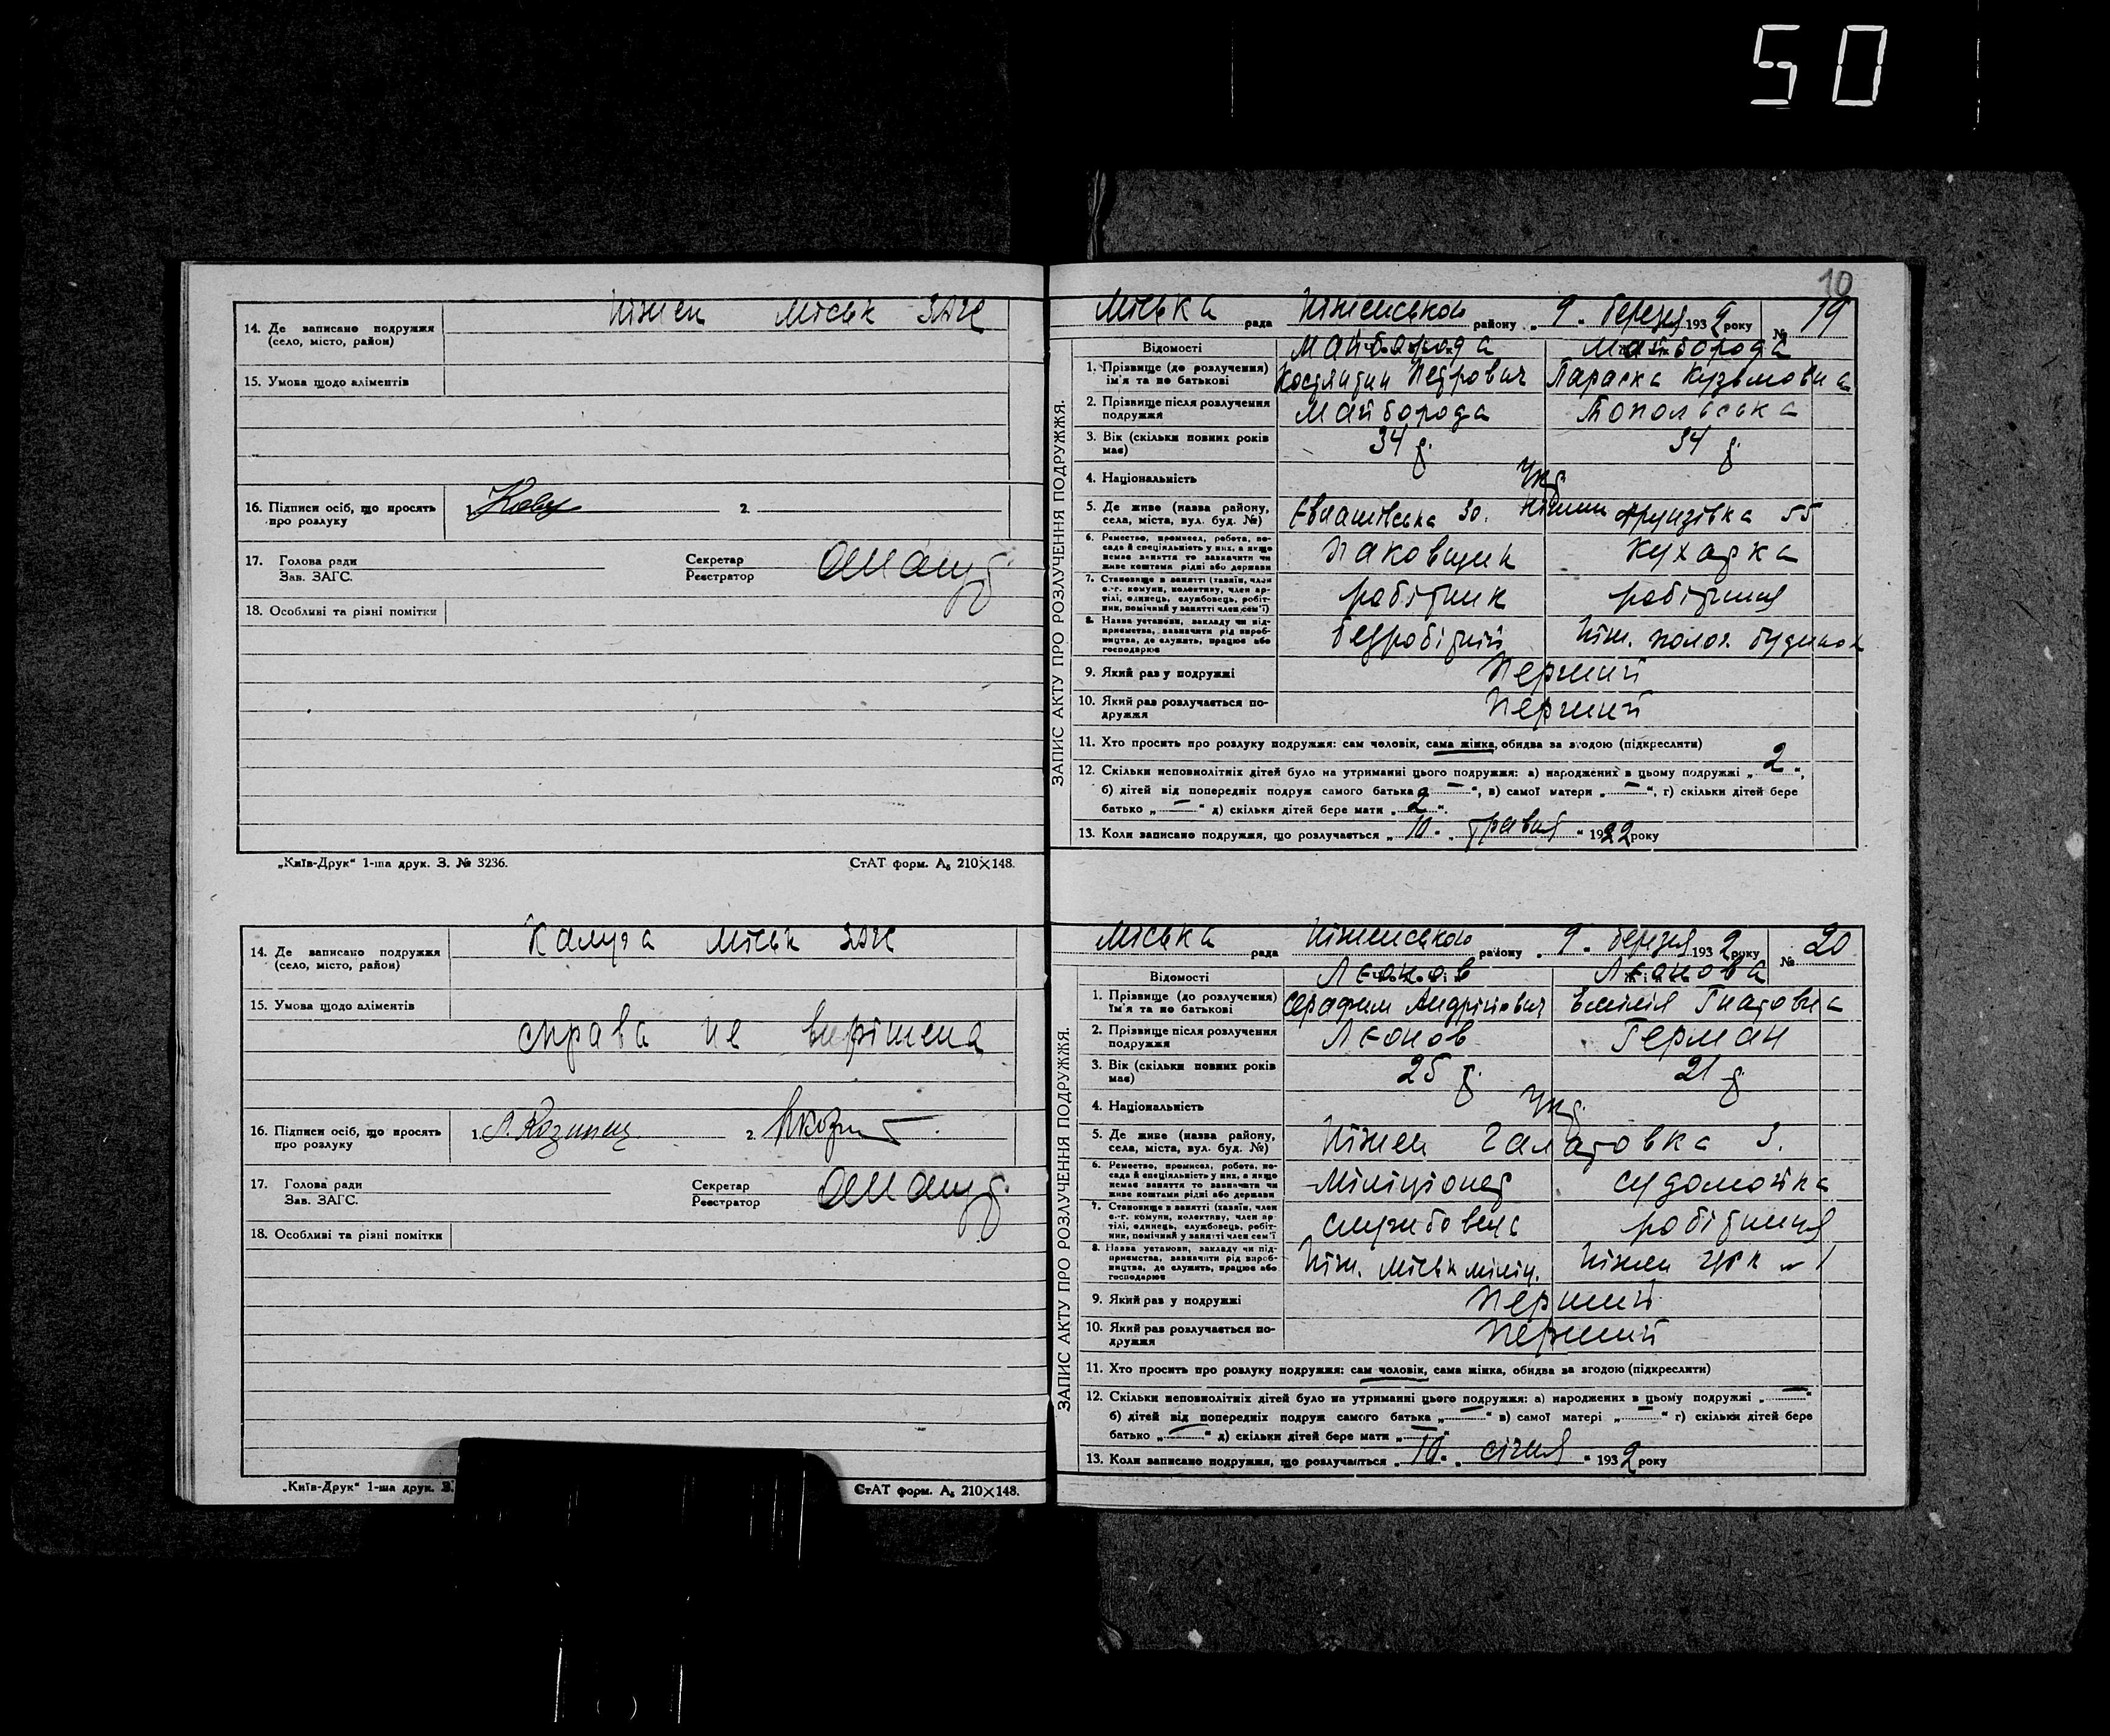 50
14. Де записано подружжя (село, місто, район) Ніжен міськ ЗАГС
15. Умова щодо аліментів
16. Підписи осіб, що просять про розлуку 1. 2.
17. Голова ради Зав. ЗАГС. Секретар Реєстратор
18. Особливі та різні помітки
„Київ-Друк“ 1-ша друк. З. № 3236. СтАТ форм. А5 210×148.
14. Де записано подружжя (село, місто, район) Калуга міськ ЗАГС
15. Умова щодо аліментів
справа не вирішена
16. Підписи осіб, що просять про розлуку 1. 2.
17. Голова ради Зав. ЗАГС. Секретар Реєстратор
18. Особливі та різні помітки
„Київ-Друк“ 1-ша друк. З. СтАТ форм. А5 210×148.
10
ЗАПИС АКТУ ПРО РОЗЛУЧЕННЯ ПОДРУЖЖЯ.
Міська рада Ніженського району „ 9 „ березня 1932 року № 19
Відомості Майборода Майборода
1. Прізвище (до розлучення) ім'я та по батькові Костянтин Петрович Параска Кузьмовна
2. Прізвище після розлучення подружжя Майборода Топольська
3. Вік (скільки повних років має) 34 р. 34 р.
4. Національність Укр.
5. Де живе (назва району, села, міста, вул. буд. №) 30. Ніжин Фрунзівка 55
6. Ремество, промисел, робота, посада й спеціяльність у них, а якщо немає заняття то зазначити чи живе коштами рідні або держави паковщик кухарка
7. Становище в занятті (хазяїн, член с.-г. комуни, колективу, член артілі, одинець, службовець, робітник, помічний у занятті член сем'ї) робітник робітниця
8. Назва установи, закладу чи підприємства, зазначити рід виробництва, де служить, працює або господарює безробітний Ніж. полог. будинок
9. Який раз у подружжі Перший
10. Який раз розлучається подружжя Перший
11. Хто просить про розлуку подружжя: сам чоловік, сама жінка, обидва за згодою (підкреслити)
12. Скільки неповнолітніх дітей було на утриманні цього подружжя: а) народжених в цьому подружжі „ 2 “,
б) дітей від попередніх подруж самого батька „ — “, в) самої матери „ — “, г) скільки дітей бере
батько „ — “ д) скільки дітей бере мати „ 2 “.
13. Коли записано подружжя, що розлучається „ 10 „ травня “ 1922 року
ЗАПИС АКТУ ПРО РОЗЛУЧЕННЯ ПОДРУЖЖЯ.
Міська рада Ніженського району „ 9 „ березня 1932 року № 20
Відомості Лєонов Лєонова
1. Прізвище (до розлучення) ім'я та по батькові Серафим Андрійович Емілія Гнатовна
2. Прізвище після розлучення подружжя Лєонов Герман
3. Вік (скільки повних років має) 25 р. 21 р.
4. Національність Укр.
5. Де живе (назва району, села, міста, вул. буд. №) Ніжен Галатовка 3.
6. Ремество, промисел, робота, посада й спеціяльність у них, а якщо немає заняття то зазначити чи живе коштами рідні або держави Міліціонер судомойка
7. Становище в занятті (хазяїн, член с.-г. комуни, колективу, член артілі, одинець, службовець, робітник, помічний у занятті член сем'ї службовець робітниця
8. Назва установи, закладу чи підприємства, зазначити рід виробництва, де служить, працює або господарює Ніж. міськ міліц. Ніжен
9. Який раз у подружжі Перший
10. Який раз розлучається подружжя Перший
11. Хто просить про розлуку подружжя: сам чоловік, сама жінка, обидва за згодою (підкреслити)
12. Скільки неповнолітніх дітей було на утриманні цього подружжя: а) народжених в цьому подружжі „ — “
б) дітей від попередніх подруж самого батька „ — “ в) самої матері „ — “ г) скільки дітей бере
батько „ — “ д) скільки дітей бере мати „ — “
13. Коли записано подружжя, що розлучається „ 10 „ січня “ 1932 року